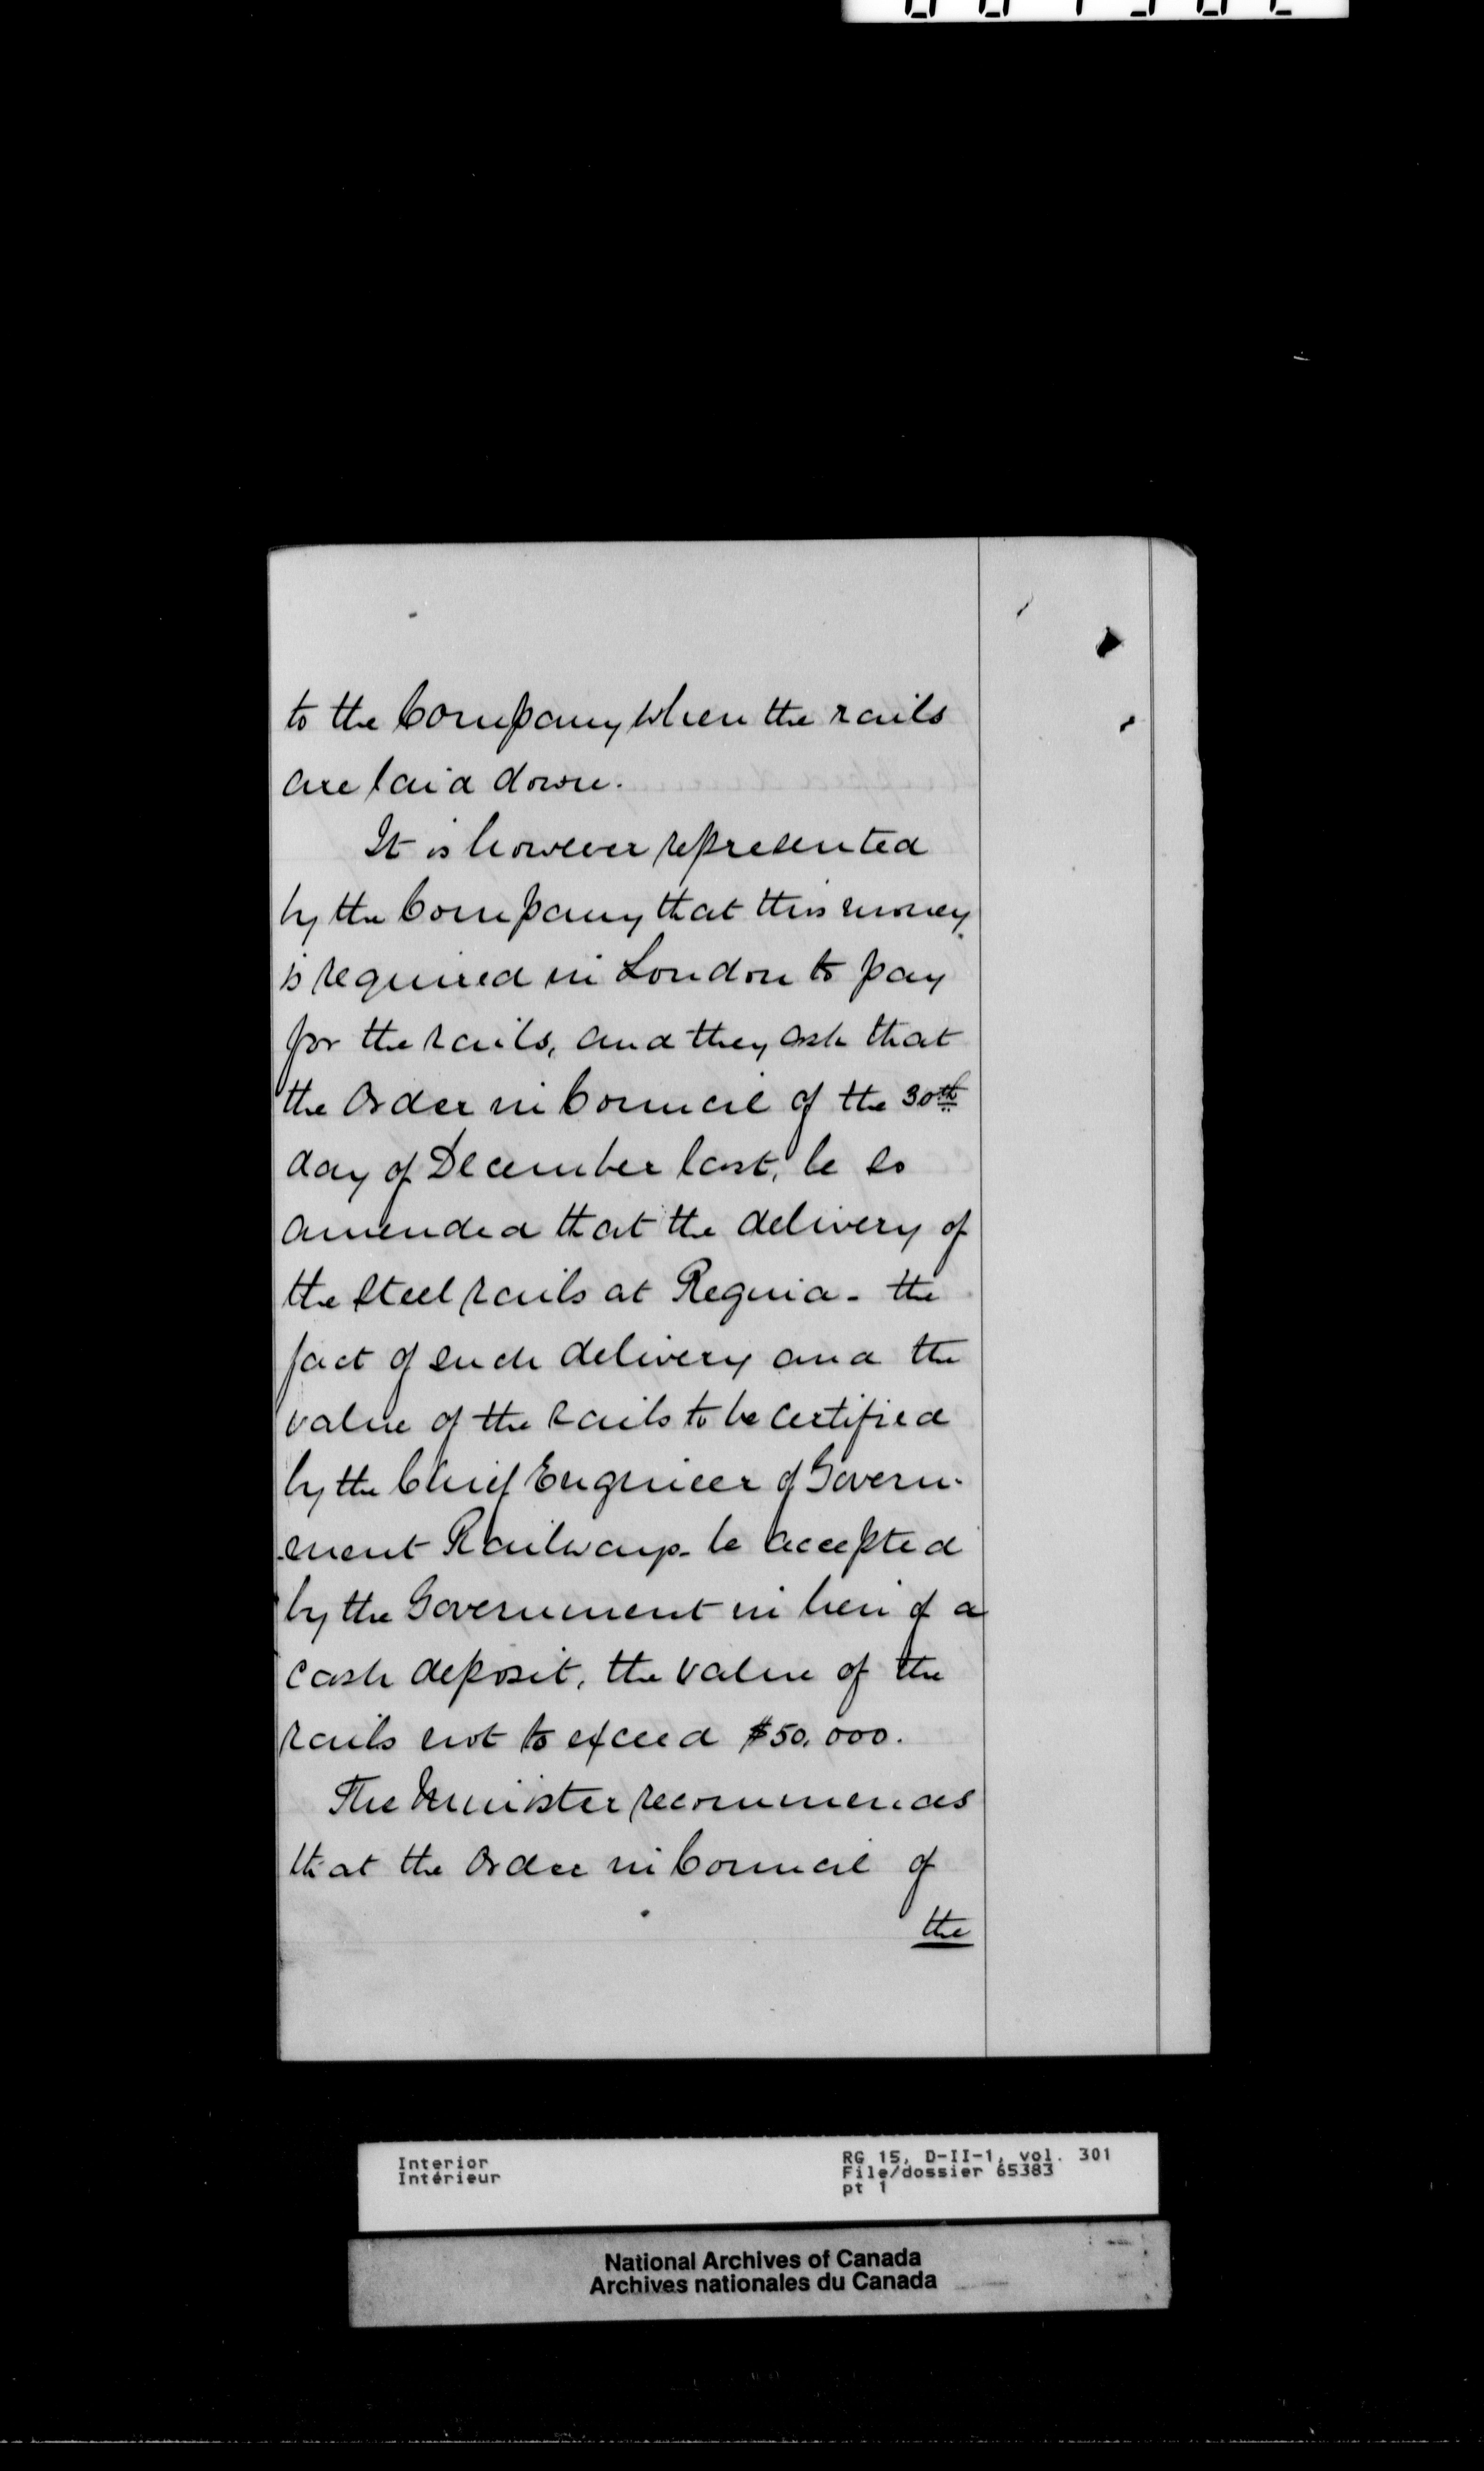 to the Company when the rails
are laid down.
It is however represented
by the Company that this money
is required in London to pay
for the rails, and they ask that
the Order in Council of the 30th
day of December last, be so
amended that the delivery of
the steel rails at Regina - the
fact of such delivery and the
value of the rails to be certified
by the Chief Engineer of Govern-
-ment Railways - be accepted
by the Government in lieu of a
cash deposit, the value of the
rails not to exceed $50,000.
The Minister recommends
that the Order in Council of
the
Interior
Intérieur
RG 15, D-II-1, vol. 301
File/dossier 65383
pt 1
National Archives of Canada
Archives nationales du Canada